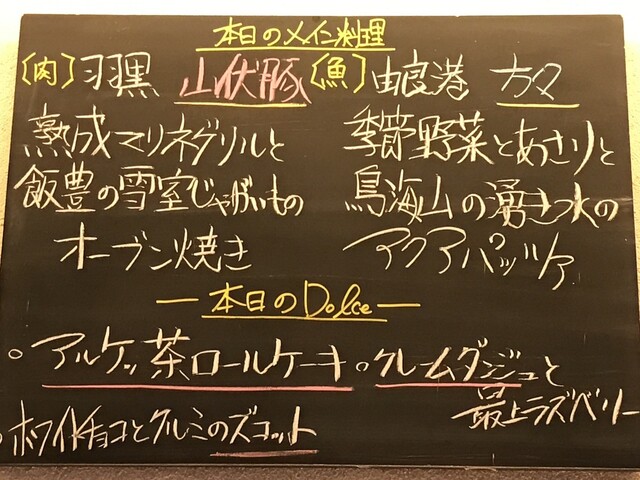 本日のメイン料理
〔肉〕羽黒 山伏豚
熟成マリネグリルと
飯豊の雪室じゃがいもの
オーブン焼き
〔魚〕由良港 方々
季節野菜とあさりと
鳥海山の湧き水の
アクアパッツァ
ー本日のDolceー
○アルケッ茶ロールケーキ
○クレームダンジュと
最上ラズベリー
○ホワイトチョコとクルミのズコット